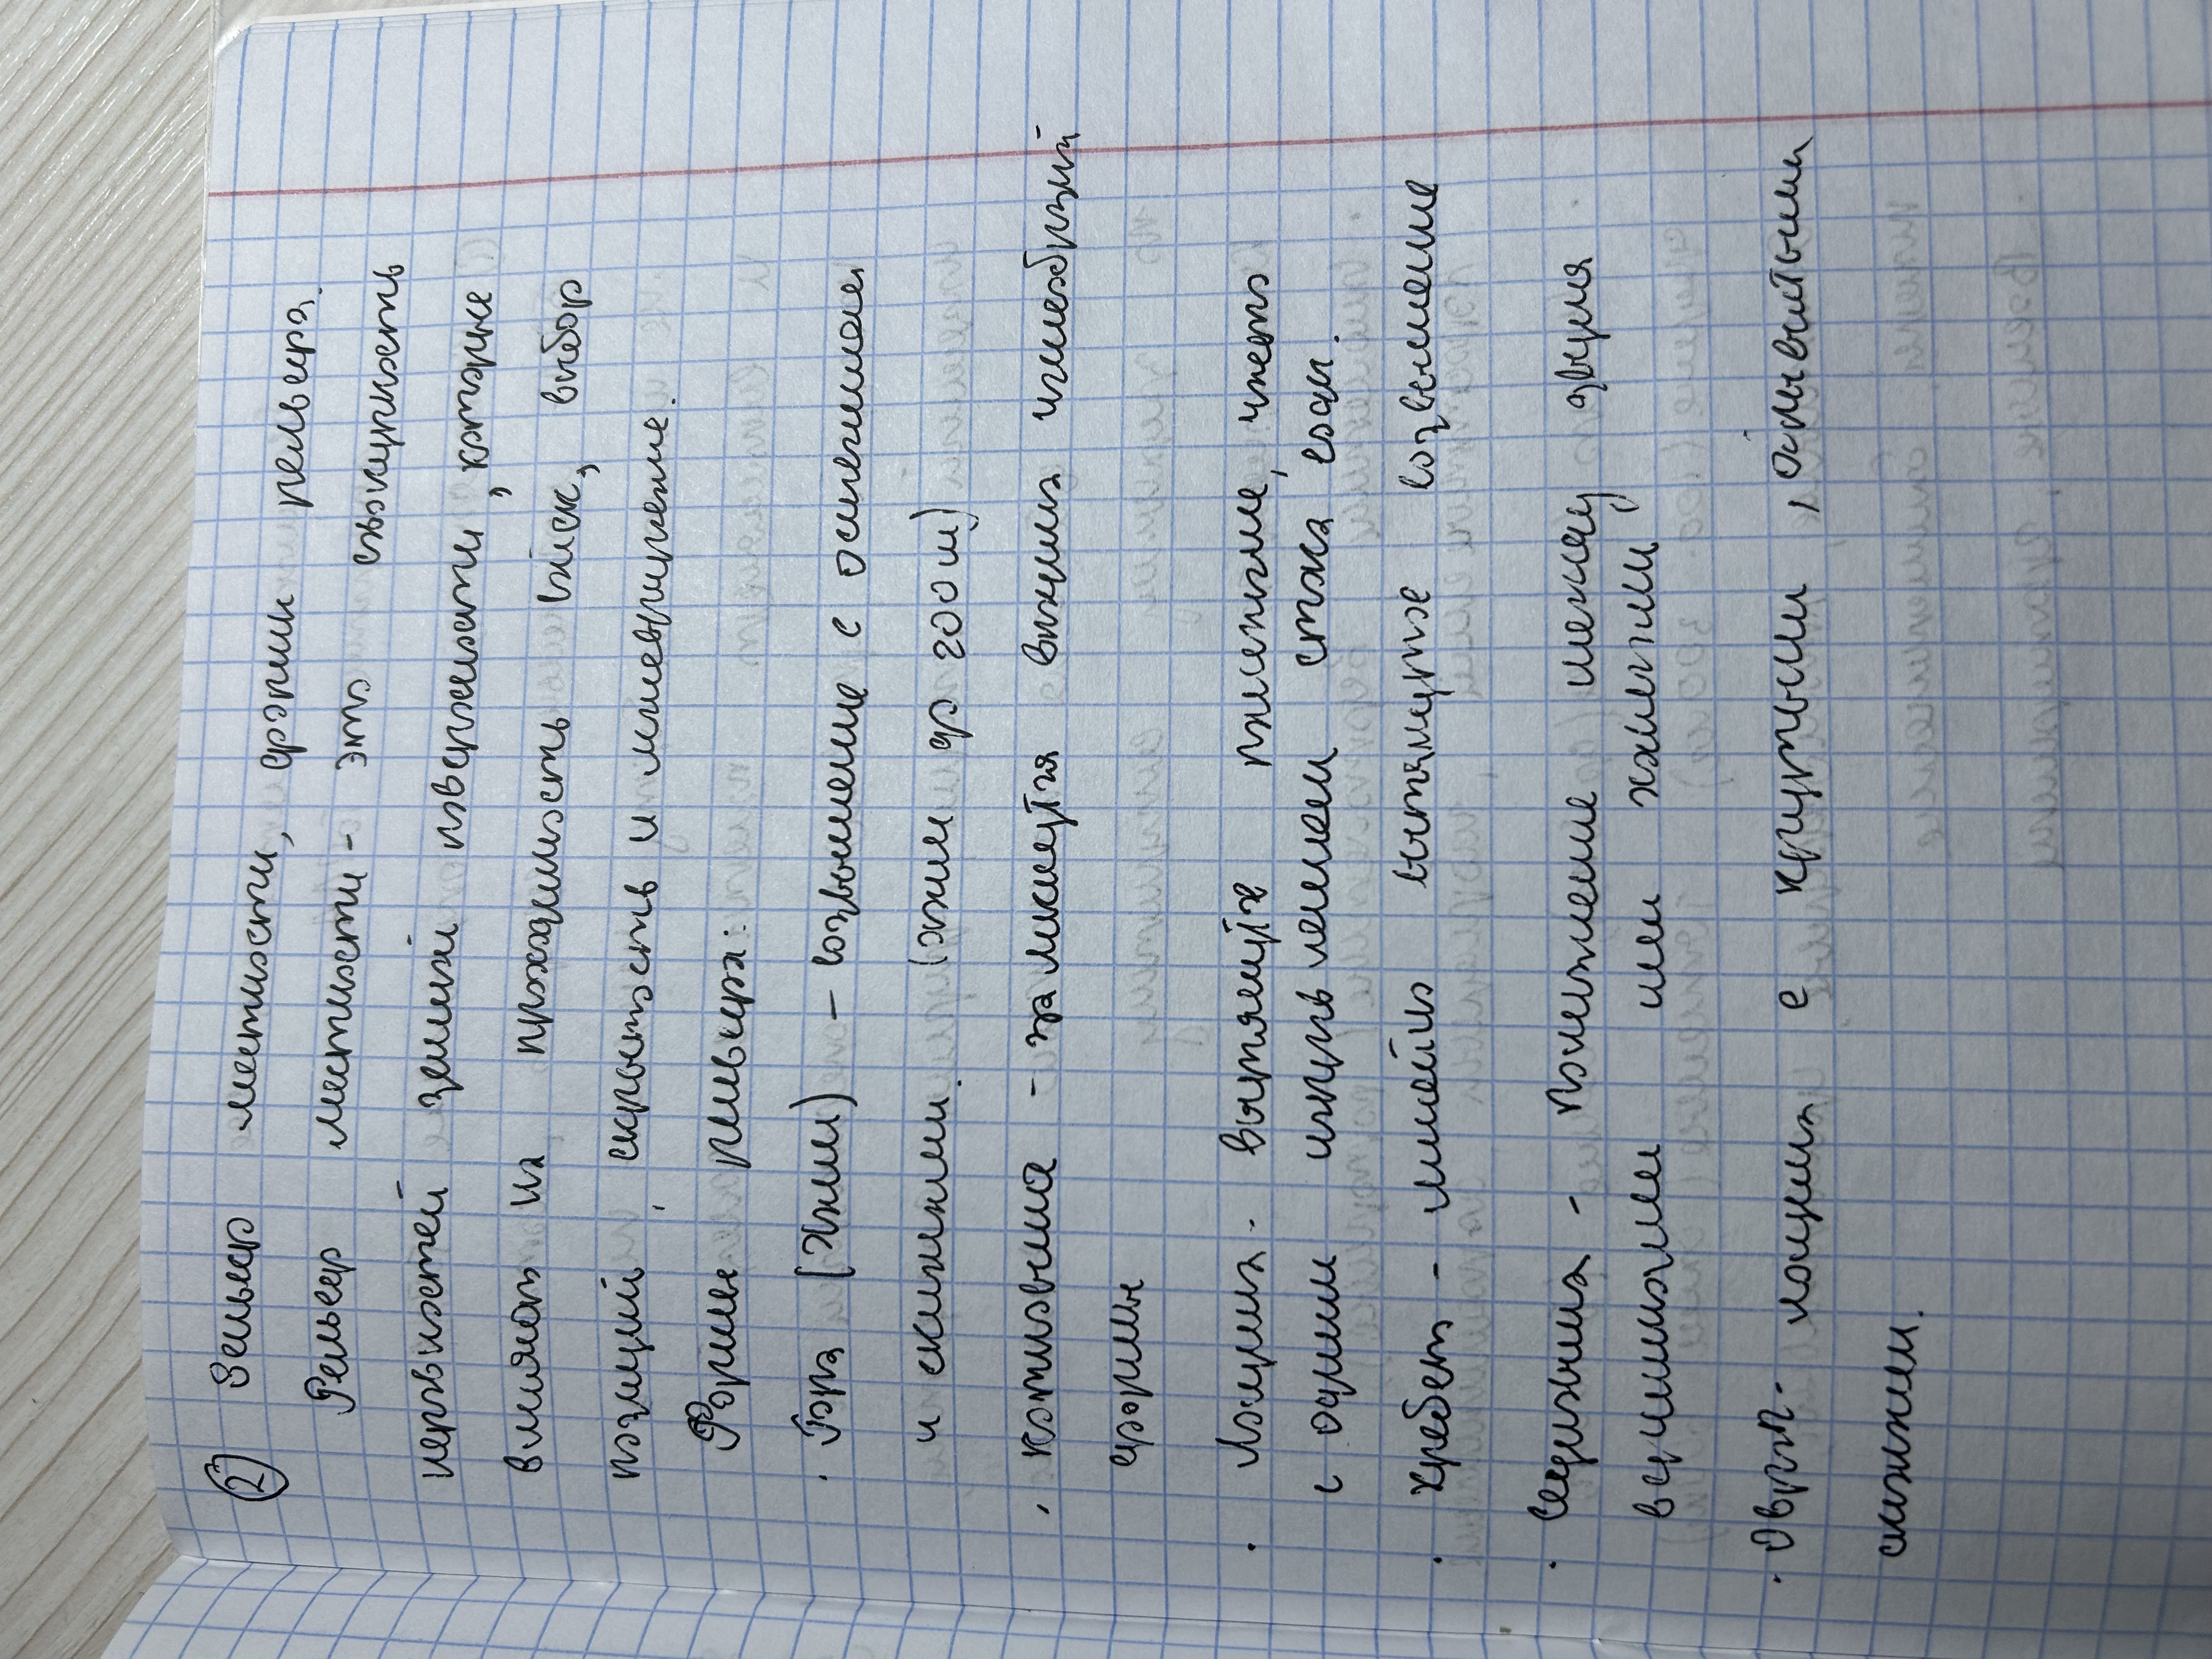 ② Рельеф местности, формы рельефа.
Рельеф местности - это совокупность
неровностей земной поверхности, которые
влияют на проходимость войск, выбор
позиций, скрытность и маневрирование.
Формы рельефа:
· Гора (холм) – возвышение с основанием
и склонами. (холм до 200 м)
· котловина - замкнутая впадина чашеобразной
формы
· Лощина - вытянутое понижение, часто
с одним направлением стока воды.
· хребет - линейно вытянутое возвышение
· Седловина - понижение между двумя
вершинами или холмами
· Овраг - лощина с крутыми, обрывистыми
склонами.